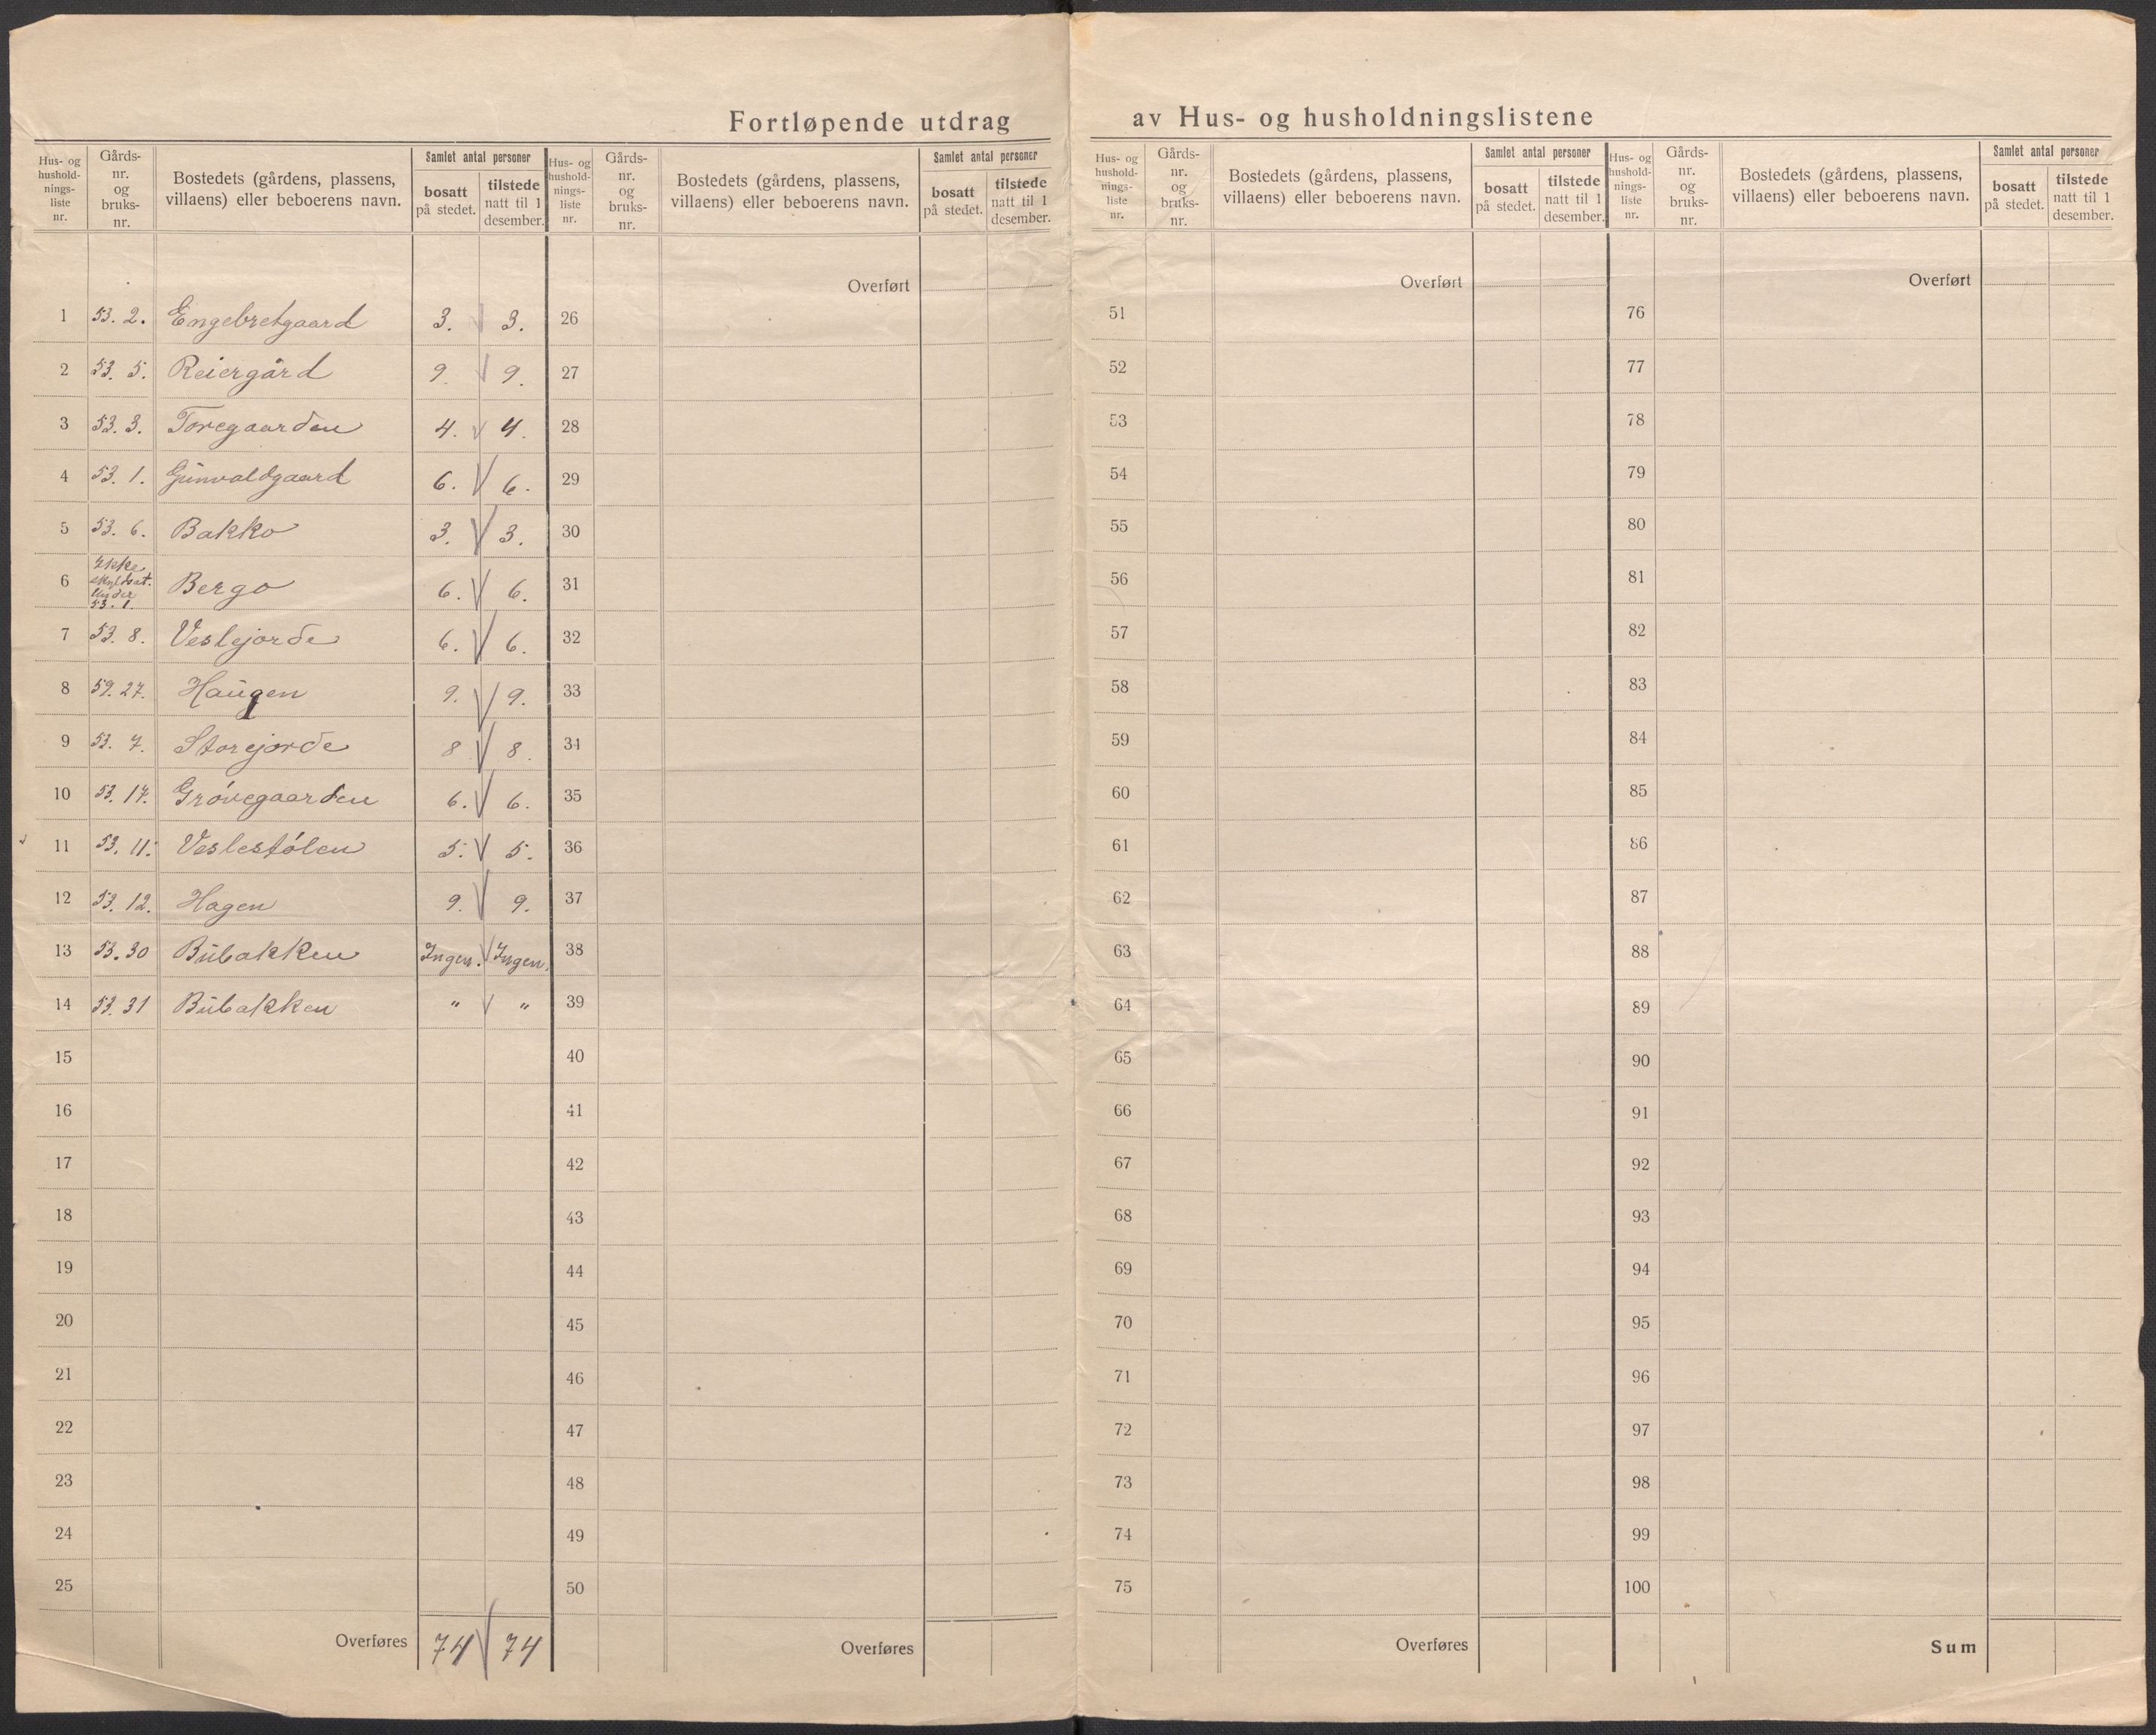 Fortløpende utdrag av Hus- og husholdningslistene
Hus- og hushold-nings-liste nr. Gårds-nr. og bruks-nr. Bostedets (gårdens, plassens, villaens) eller beboerens navn. Samlet antal personer bosatt på stedet. tilstede natt til 1 desember.
1 53. 2. Engebretgaard 3. 3.
2 53. 5. Reiergård 9. 9.
3 53. 3. Toregaarden 4. 4.
4 53. 1. Gunvaldgaard 6. 6.
5 53. 6. Bakko 3. 3.
6 Ikke skyldsat. Under 53. 1. Bergo 6. 6.
7 53. 8. Veslejorde 6. 6.
8 59. 27. Haugen 9. 9.
9 53. 7. Storejorde 8 8.
10 53. 17. Grövegaarden 6. 6.
11 53. 11. Veslestólen 5. 5.
12 53. 12. Hagen 9. 9.
13 53. 30 Bubakken Ingen. Ingen.
14 53. 31 Bubakken " "
15
16
17
18
19
20
21
22
23
24
25
Overføres 74 74
Hus- og hushold-nings-liste nr. Gårds-nr. og bruks-nr. Bostedets (gårdens, plassens, villaens) eller beboerens navn. Samlet antal personer bosatt på stedet. tilstede natt til 1 desember.
Overført
26
27
28
29
30
31
32
33
34
35
36
37
38
39
40
41
42
43
44
45
46
47
48
49
50
Overføres
Hus- og hushold-nings-liste nr. Gårds-nr. og bruks-nr. Bostedets (gårdens, plassens, villaens) eller beboerens navn. Samlet antal personer bosatt på stedet. tilstede natt til 1 desember.
Overført
51
52
53
54
55
56
57
58
59
60
61
62
63
64
65
66
67
68
69
70
71
72
73
74
75
Overføres
Hus- og hushold-nings-liste nr. Gårds-nr. og bruks-nr. Bostedets (gårdens, plassens, villaens) eller beboerens navn. Samlet antal personer bosatt på stedet. tilstede natt til 1 desember.
Overført
76
77
78
79
80
81
82
83
84
85
86
87
88
89
90
91
92
93
94
95
96
97
98
99
100
Sum